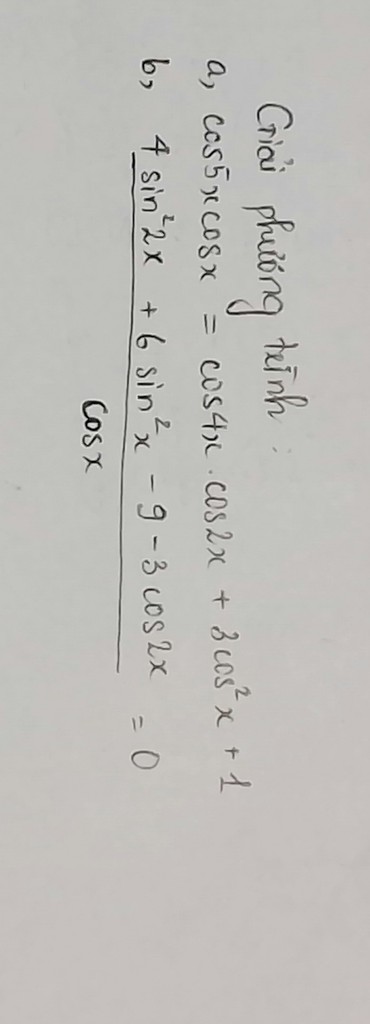 Giải phương trình:
a, cos5x cosx = cos4x . cos2x + 3cos²x + 1
b, 4 sin²2x + 6 sin²x - 9 - 3 cos2x = 0
cosx